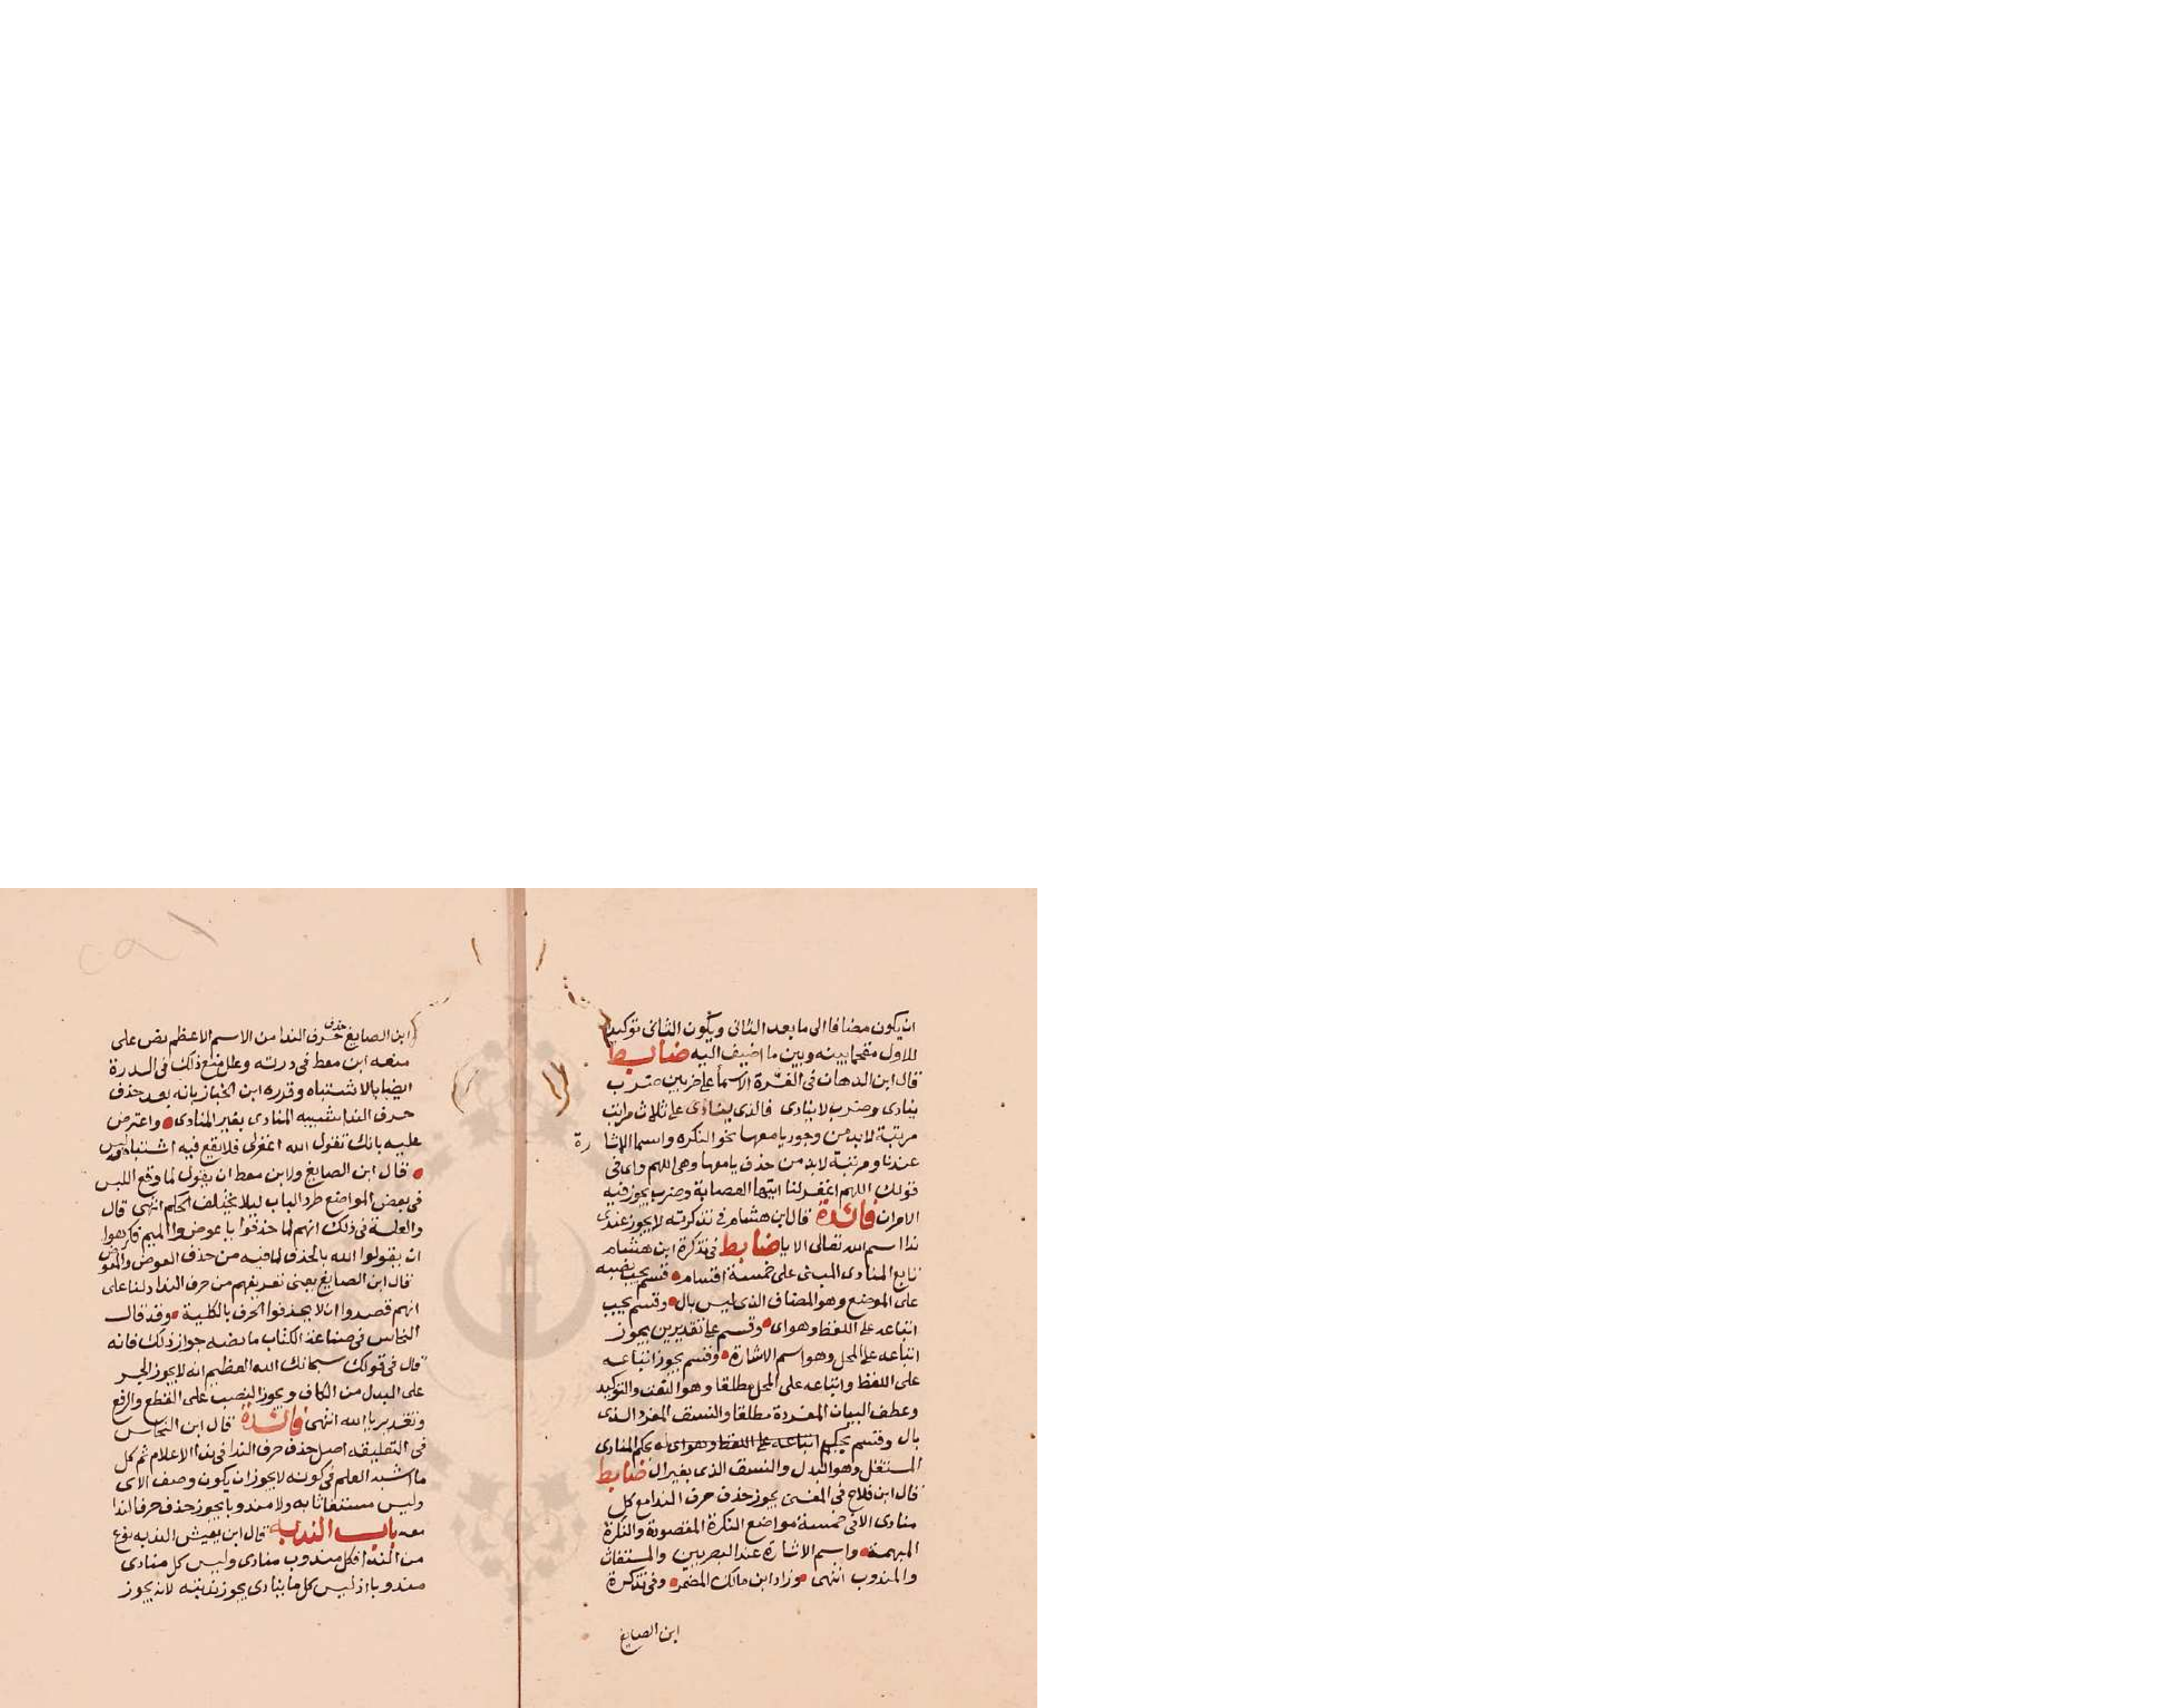 ان يكون مضافا الى ما بعد الثانى ويكون الثانى توكيدا
للاول مقحما بينه وبين ما اضيف اليه ضابط
قال ابن الدهان فى الغرة الاسماء على ضربين ضرب
ينادى وضرب لا ينادى فالذى ينادى على ثلاث مراتب
مرتبة لابد من وجود يا معها نحو النكره واسما الاشارة
عندنا ومرتبة لابد من حذف يا معها وهى اللهم واى فى
قولك اللهم اغفر لنا ايتها العصابة وضرب يجوز فيه
الامران فائدة قال ابن هشام فى تذكرته لا يجوز عندى
ندا اسم الله تعالى الا بيا ضابط فى تذكرة ابن هشام
تابع المنادى المبنى على خمسة اقسام قسم يجب نصبه
على الموضع وهو المضاف الذى ليس بال وقسم يجب
اتباعه على اللفظ وهو اى وقسم على تقديرين يجوز
اتباعه على المحل وهو اسم الاشارة وقسم يجوز اتباعه
على اللفظ واتباعه على المحل مطلقا وهو النعت والتوكيد
وعطف البيان المفردة مطلقا والنسق المفرد الذى
بال وقسم يحكم اتباعه على اللفظ وهو اى له بحكم المنادى
المستقل وهو البدل والنسق الذى بغير ال ضابط
قال ابن فلاح فى المغنى يجوز حذف حرف الندا مع كل
منادى الا فى خمسة مواضع النكرة المقصودة والنكرة
المبهمة واسم الاشارة عند البصريين والمستغاث
والمندوب انتهى وزاد ابن مالك المضمر وفى تذكرة
ابن الصايغ
ابن الصايغ حذف حرف الندا من الاسم الاعظم نص على
منعه ابن معط فى درته وعلل منع ذلك فى الدرة
ايضا بالاشتباه وقرره ابن الخباز بانه بعد حذف
حرف الندا يشبه المنادى بغير المنادى واعترض
عليه بانك تقول الله اغفر لى فلا يقع فيه اشتباه
قال ابن الصايغ ولابن معط ان يقول لما وقع اللبس
فى بعض المواضع طرد الباب ليلا يختلف الحكم انتهى قال
والعلة فى ذلك انهم لما حذفوا يا عوضوا الميم فكرهوا
ان يقولوا الله بالحذف لما فيه من حذف العوض والمعوض
قال ابن الصايغ يعنى تعريفهم من حرف الندا دلنا على
انهم قصدوا ان لا يحذفوا الحرف بالكلية وقد قال
النحاس فى صناعة الكتاب ما نصه جواز ذلك فانه
قال فى قولك سبحانك الله العظيم انه لا يجوز الجر
على البدل من الكاف ويجوز النصب على القطع والرفع
وتقدير يا الله انتهى فائدة قال ابن النحاس
فى التعليقه اصل حذف حرف الندا فى ندا الاعلام ثم كل
ما اشبه العلم فى كونه لا يجوز ان يكون وصف الاى
وليس مستغاثا به ولا مندوبا يجوز حذف حرف الندا
معه باب الندبه قال ابن يعيش الندبه نوع
من الندا فكل مندوب منادى وليس كل منادى
مندوبا اذ ليس كل ما ينادى يجوز ندبته لانه يجوز